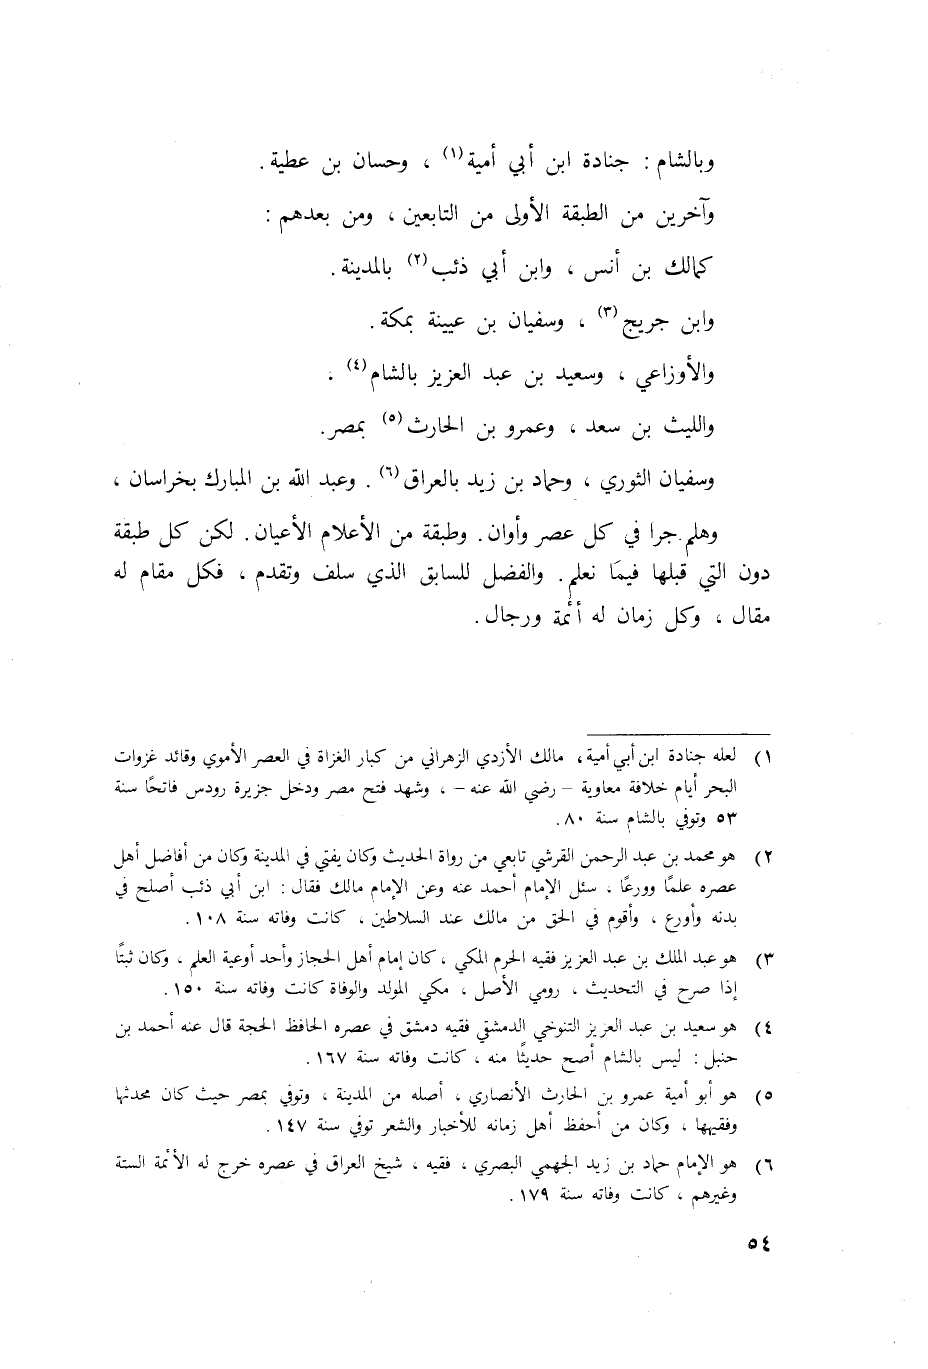 وبالشام : جنادة ابن أبي أمية(١) ، وحسان بن عطية .
وآخرين من الطبقة الأولى من التابعين ، ومن بعدهم :
كمالك بن أنس ، وابن أبي ذئب(٢) بالمدينة .
وابن جريج(٣) ، وسفيان بن عيينة بمكة .
والأوزاعي ، وسعيد بن عبد العزيز بالشام(٤) .
والليث بن سعد ، وعمرو بن الحارث(٥) بمصر .
وسفيان الثوري ، وحماد بن زيد بالعراق(٦) . وعبد الله بن المبارك بخراسان ،
وهلم جرا في كل عصر وأوان . وطبقة من الأعلام الأعيان . لكن كل طبقة
دون التي قبلها فيمَا نعلم . والفضل للسابق الذي سلف وتقدم ، فكل مقام له
مقال ، وكل زمان له أئمة ورجال .
١) لعله جنادة ابن أبي أمية، مالك الأزدي الزهراني من كبار الغزاة في العصر الأموي وقائد غزوات
البحر أيام خلافة معاوية – رضي الله عنه – ، وشهد فتح مصر ودخل جزيرة رودس فاتحًا سنة
٥٣ وتوفي بالشام سنة ٨٠ .
٢) هو محمد بن عبد الرحمن القرشي تابعي من رواة الحديث وكان يفتي في المدينة وكان من أفاضل أهل
عصره علمًا وورعًا ، سئل الإمام أحمد عنه وعن الإمام مالك فقال : ابن أبي ذئب أصلح في
بدنه وأورع ، وأقوم في الحق من مالك عند السلاطين ، كانت وفاته سنة ١٠٨ .
٣) هو عبد الملك بن عبد العزيز فقيه الحرم المكي ، كان إمام أهل الحجاز وأحد أوعية العلم ، وكان ثبتًا
إذا صرح في التحديث ، رومي الأصل ، مكي المولد والوفاة كانت وفاته سنة ١٥٠ .
٤) هو سعيد بن عبد العزيز التنوخي الدمشقي فقيه دمشق في عصره الحافظ الحجة قال عنه أحمد بن
حنبل : ليس بالشام أصح حديثًا منه ، كانت وفاته سنة ١٦٧ .
٥) هو أبو أمية عمرو بن الحارث الأنصاري ، أصله من المدينة ، وتوفي بمصر حيث كان محدثها
وفقيهها ، وكان من أحفظ أهل زمانه للأخبار والشعر توفي سنة ١٤٧ .
٦) هو الإمام حماد بن زيد الجهمي البصري ، فقيه ، شيخ العراق في عصره خرج له الأئمة الستة
وغيرهم ، كانت وفاته سنة ١٧٩ .
٥٤